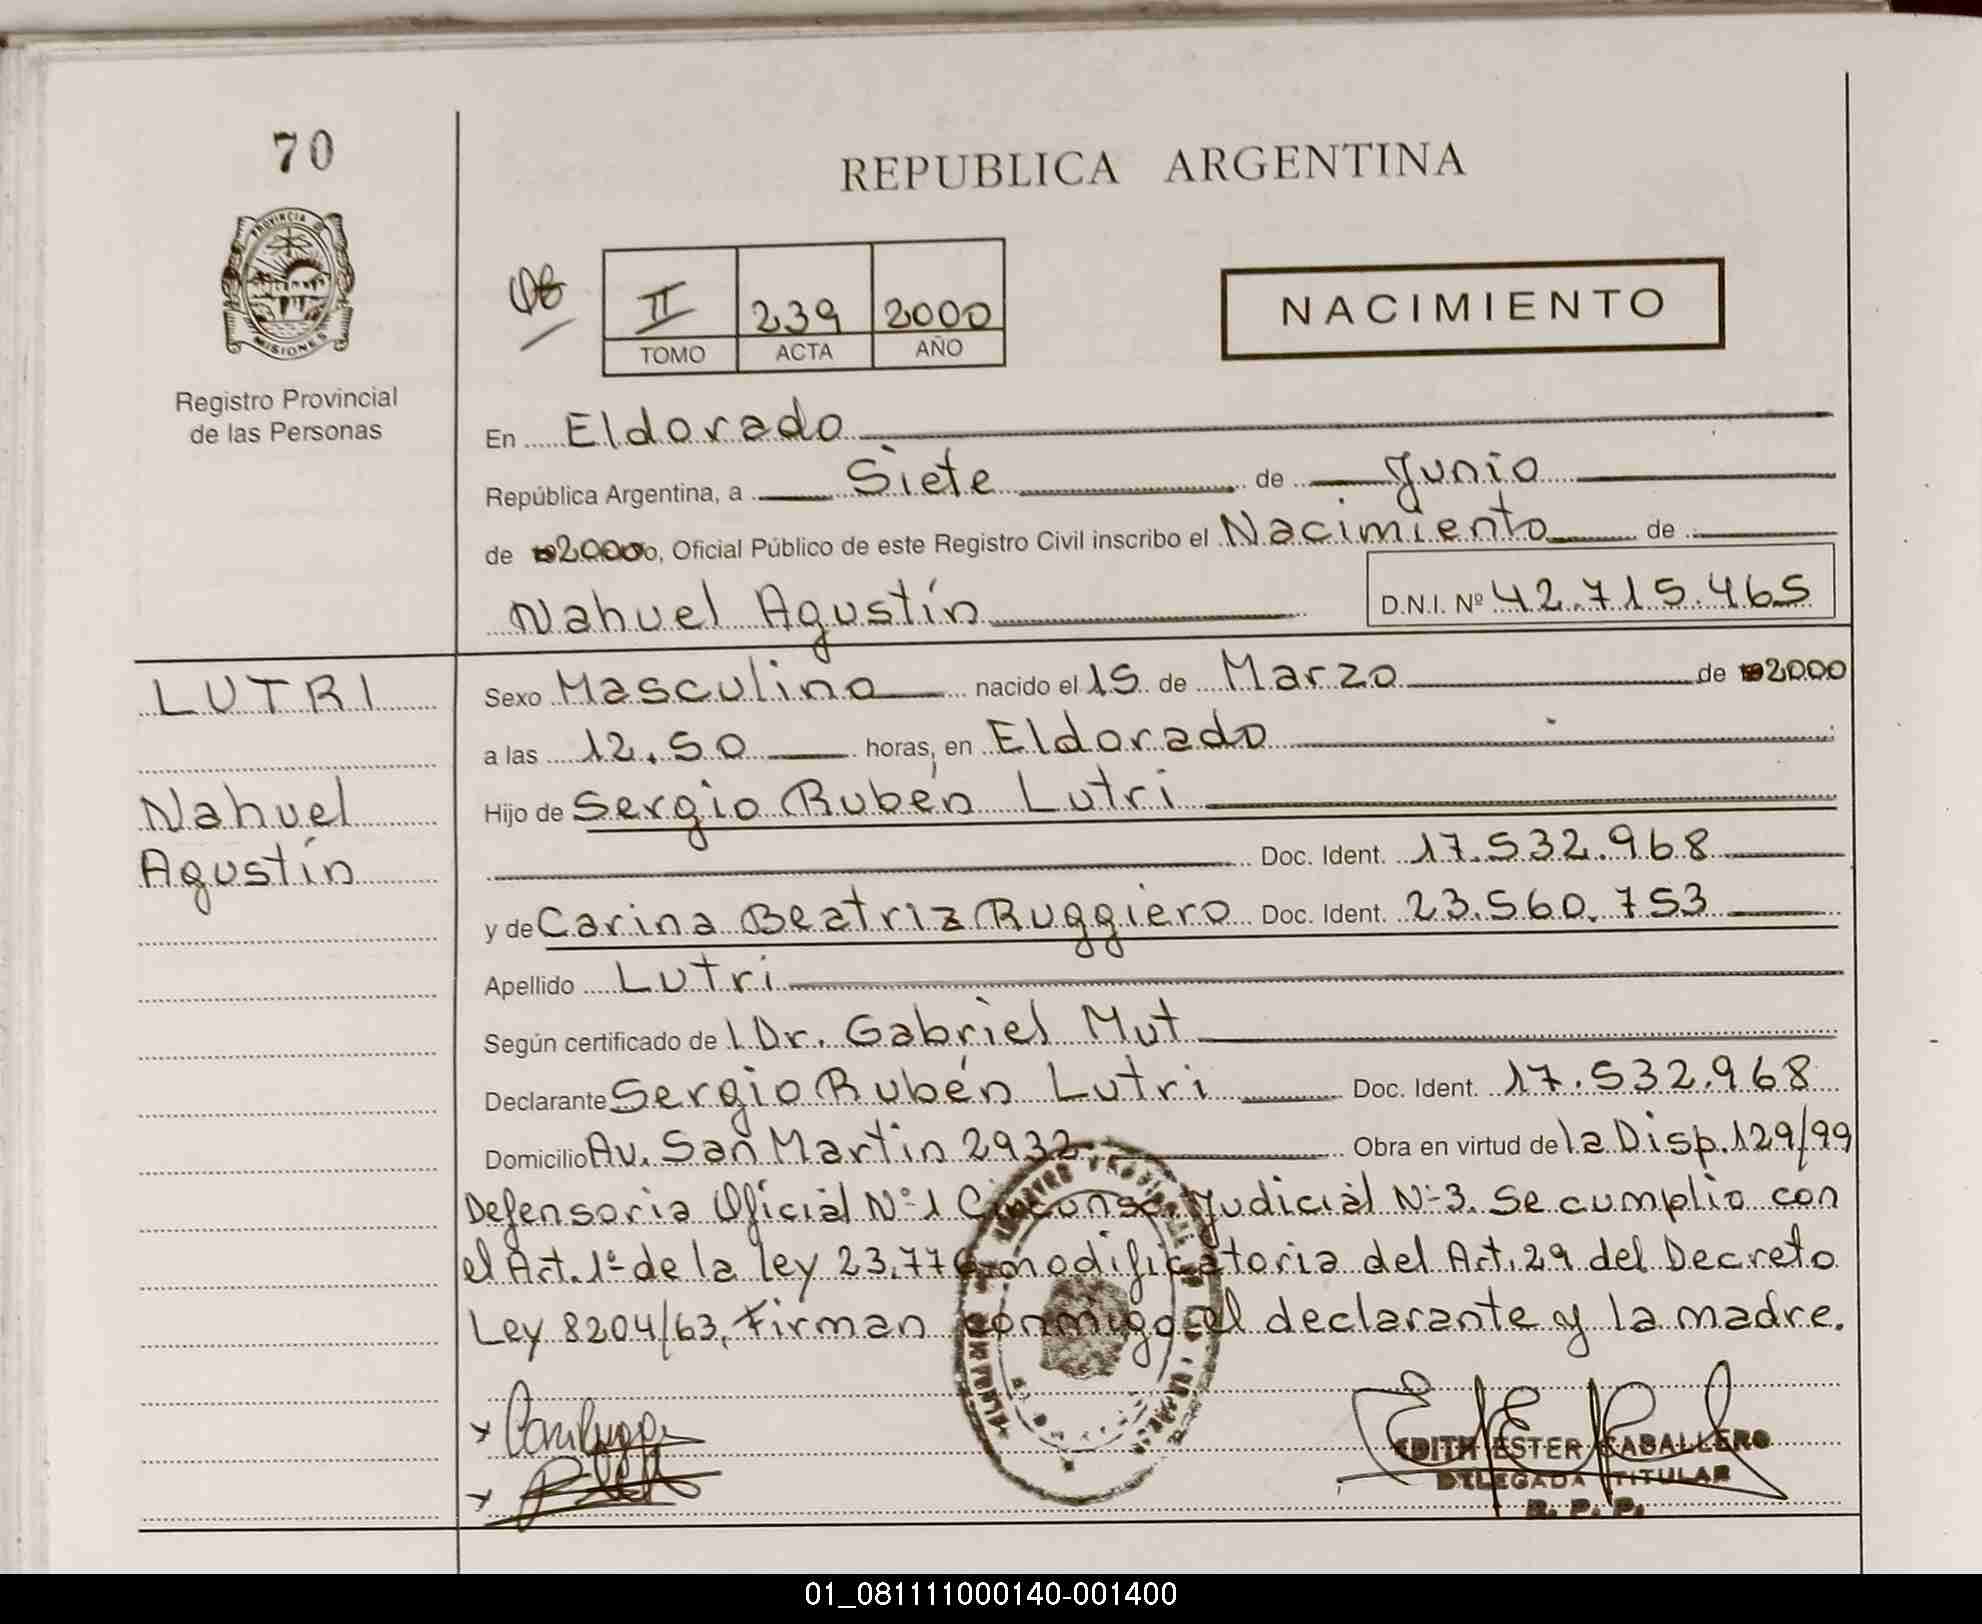 70
REPUBLICA ARGENTINA
PROVINCIA
MISIONES
II 239 2000
TOMO ACTA AÑO
NACIMIENTO
Registro Provincial
de las Personas
En Eldorado
República Argentina, a Siete de Junio
de 2000, Oficial Público de este Registro Civil inscribo el Nacimiento de
Nahuel Agustín D.N.I. Nº 42.715.465
LUTRI
Nahuel
Agustín
Sexo Masculino nacido el 15 de Marzo de 2000
a las 12.50 horas, en Eldorado
Hijo de Sergio Rubén Lutri
Doc. Ident. 17.532.968
y de Carina Beatriz Ruggiero Doc. Ident. 23.560.753
Apellido Lutri
Según certificado de l Dr. Gabriel Mut
Declarante Sergio Rubén Lutri Doc. Ident. 17.532.968
Domicilio Av. San Martin 2932 Obra en virtud de la Disp. 129/99
Defensoria Oficial Nº 1 Circunsc. Judicial Nº 3. Se cumplio con
el Art. 1º de la ley 23.776 modificatoria del Art. 29 del Decreto
Ley 8204/63, Firman conmigo el declarante y la madre.
EDITH ESTER CABALLERO
DELEGADA TITULAR
R. P. P.
01_081111000140-001400